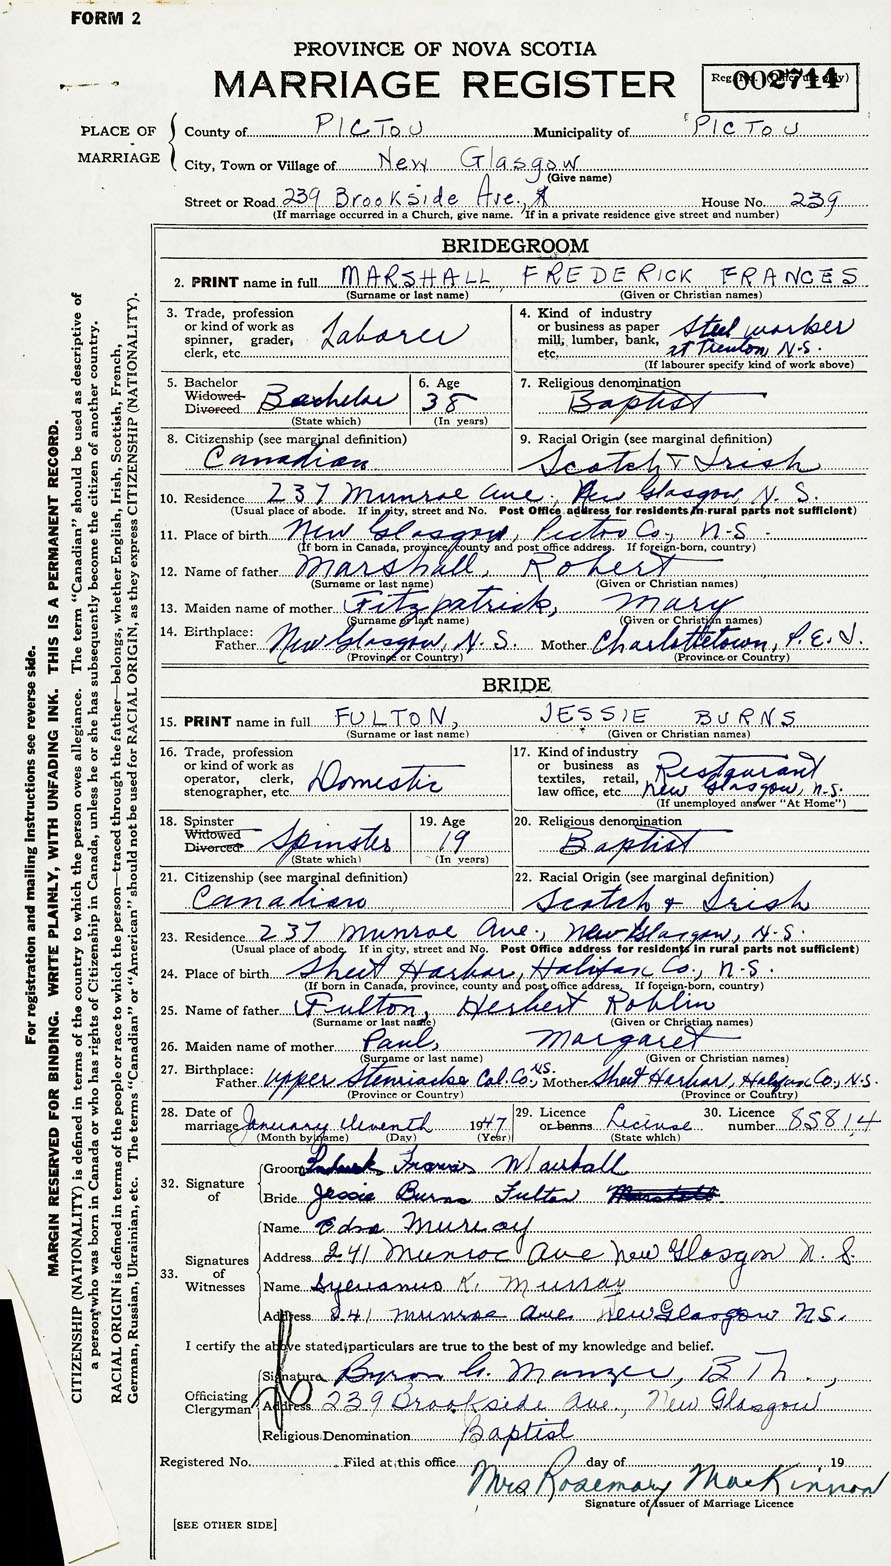 FORM 2
PROVINCE OF NOVA SCOTIA
MARRIAGE REGISTER
Reg. No. (Office use only)
002714
PLACE OF MARRIAGE
County of PICTOU Municipality of PICTOU
City, Town or Village of New Glasgow
(Give name)
Street or Road 239 Brookside Ave., House No. 239
(If marriage occurred in a Church, give name. If in a private residence give street and number)
BRIDEGROOM
2. PRINT name in full MARSHALL, FREDERICK FRANCES
(Surname or last name) (Given or Christian names)
3. Trade, profession or kind of work as spinner, grader, clerk, etc. Laborer
4. Kind of industry or business as paper mill, lumber, bank, etc. Steel worker at Trenton N.S.
(If labourer specify kind of work above)
5. Bachelor Widowed Divorced Bachelor
(State which)
6. Age 38
(In years)
7. Religious denomination Baptist
8. Citizenship (see marginal definition) Canadian
9. Racial Origin (see marginal definition) Scotch & Irish
10. Residence 237 Munroe Ave., New Glasgow, N.S.
(Usual place of abode. If in city, street and No. Post Office address for residents in rural parts not sufficient)
11. Place of birth New Glasgow, Pictou Co., N.S.
(If born in Canada, province, county and post office address. If foreign-born, country)
12. Name of father Marshall, Robert
(Surname or last name) (Given or Christian names)
13. Maiden name of mother Fitzpatrick, Mary
(Surname or last name) (Given or Christian names)
14. Birthplace: Father New Glasgow, N.S. Mother Charlottetown, P.E.I.
(Province or Country) (Province or Country)
BRIDE
15. PRINT name in full FULTON, JESSIE BURNS
(Surname or last name) (Given or Christian names)
16. Trade, profession or kind of work as operator, clerk, stenographer, etc. Domestic
17. Kind of industry or business as textiles, retail, law office, etc. Restaurant New Glasgow, N.S.
(If unemployed answer "At Home")
18. Spinster Widowed Divorced Spinster
(State which)
19. Age 19
(In years)
20. Religious denomination Baptist
21. Citizenship (see marginal definition) Canadian
22. Racial Origin (see marginal definition) Scotch & Irish
23. Residence 237 Munroe Ave., New Glasgow, N.S.
(Usual place of abode. If in city, street and No. Post Office address for residents in rural parts not sufficient)
24. Place of birth Sheet Harbor, Halifax Co., N.S.
(If born in Canada, province, county and post office address. If foreign-born, country)
25. Name of father Fulton, Herbert Roblin
(Surname or last name) (Given or Christian names)
26. Maiden name of mother Paul, Margaret
(Surname or last name) (Given or Christian names)
27. Birthplace: Father Upper Stewiacke Col. Co. N.S. Mother Sheet Harbor, Halifax Co., N.S.
(Province or Country) (Province or Country)
28. Date of marriage January eleventh 1947
(Month by name) (Day) (Year)
29. Licence or banns License
(State which)
30. Licence number 85814
32. Signature of
Groom Francis Marshall
Bride Jessie Burns Fulton
33. Signatures of Witnesses
Name Edna Murray
Address 241 Munroe Ave New Glasgow N.S.
Name Sylvanus K. Murray
Address 241 Munroe Ave. New Glasgow N.S.
I certify the above stated particulars are true to the best of my knowledge and belief.
Officiating Clergyman
Signature Byron G. Manzer, B Th.,
Address 239 Brookside Ave., New Glasgow
Religious Denomination Baptist
Registered No. Filed at this office day of 19
Mrs Rosemary MacKinnon
Signature of Issuer of Marriage Licence
[SEE OTHER SIDE]
For registration and mailing instructions see reverse side.
MARGIN RESERVED FOR BINDING. WRITE PLAINLY, WITH UNFADING INK. THIS IS A PERMANENT RECORD.
CITIZENSHIP (NATIONALITY) is defined in terms of the country to which the person owes allegiance. The term "Canadian" should be used as descriptive of
a person who was born in Canada or who has rights of Citizenship in Canada, unless he or she has subsequently become the citizen of another country.
RACIAL ORIGIN is defined in terms of the people or race to which the person—traced through the father—belongs, whether English, Irish, Scottish, French,
German, Russian, Ukrainian, etc. The terms "Canadian" or "American" should not be used for RACIAL ORIGIN, as they express CITIZENSHIP (NATIONALITY).